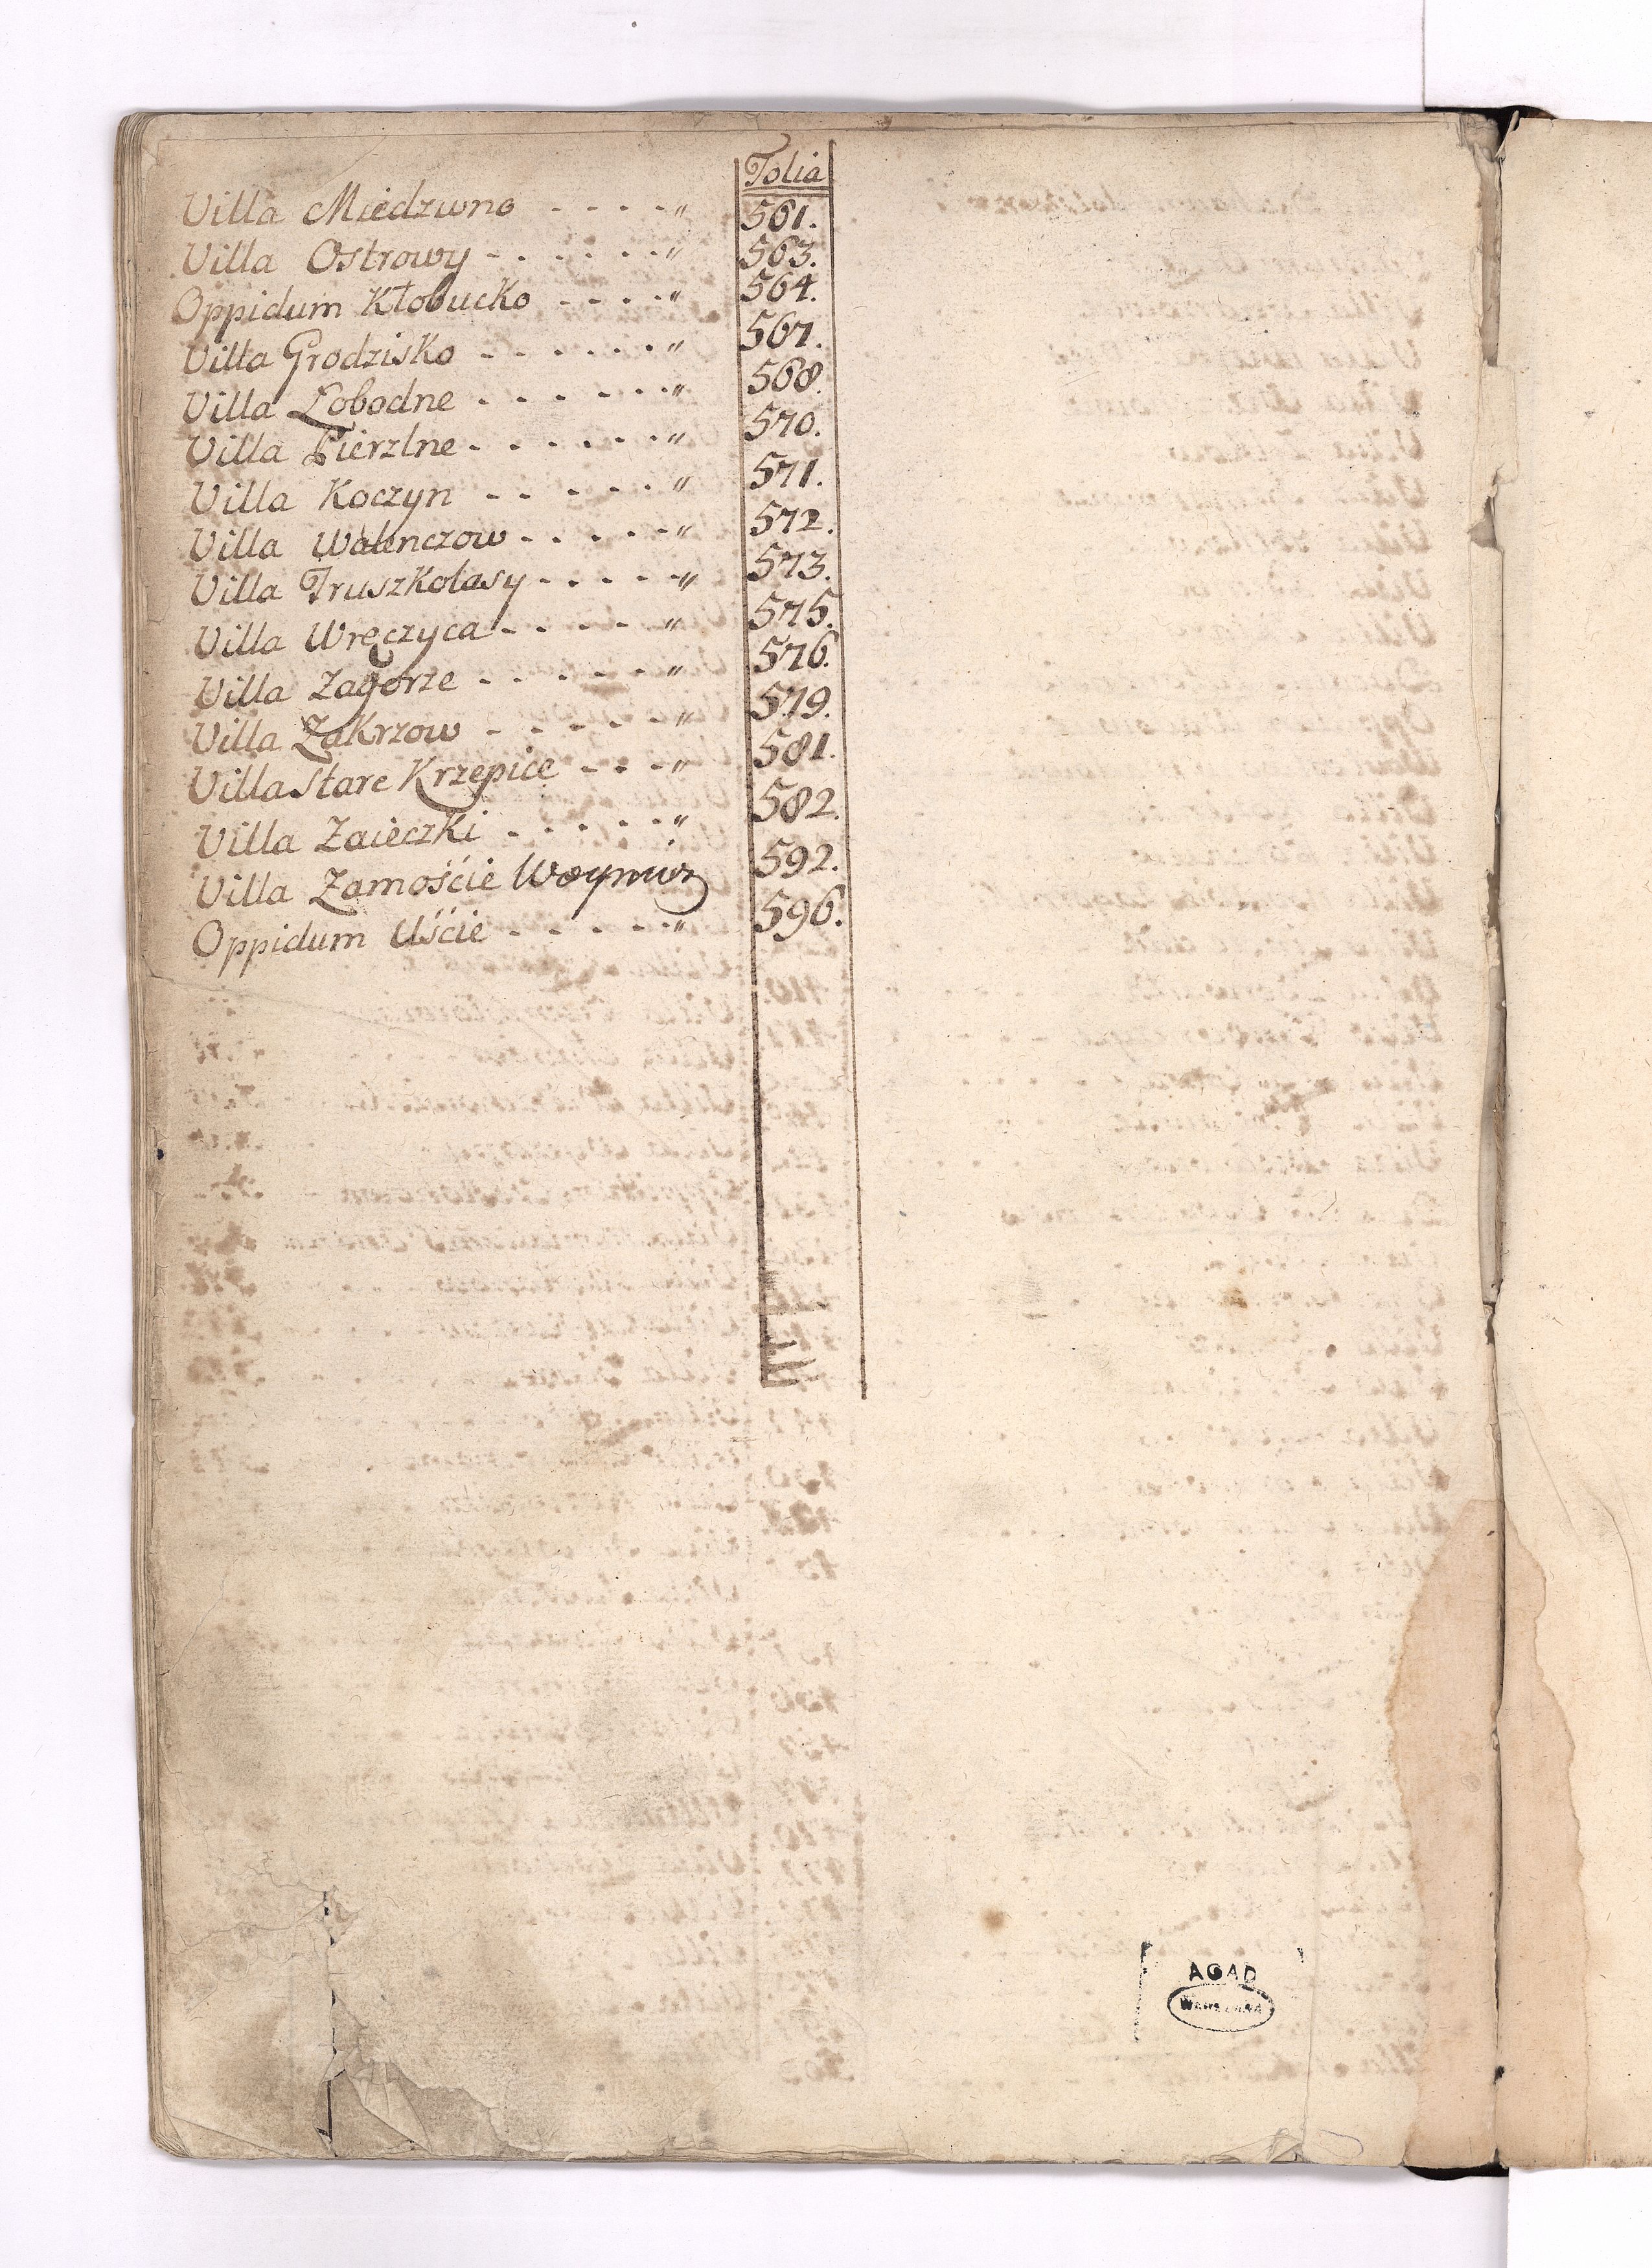 Folia
Villa Miedzwno - - - - " 561.
Villa Ostrowy - - - - - - " 563.
Oppidum Kłobucko - - - - " 564.
Villa Grodzisko - - - - - - " 567.
Villa Łobodne - - - - - - " 568.
Villa Pierzlne - - - - - - " 570.
Villa Koczyn - - - - - - " 571.
Villa Walenczow - - - - - " 572.
Villa Truszkolasy - - - - - " 573.
Villa Wręczyca - - - - - " 575.
Villa Zagorze - - - - - - " 576.
Villa Zakrzow - - - - - " 579.
Villa Stare Krzepice - - - " 581.
Villa Zaieczki - - - - - " 582.
Villa Zamoście 592.
Oppidum Uście - - - - - " 596.
AGAD
WARSZAWA